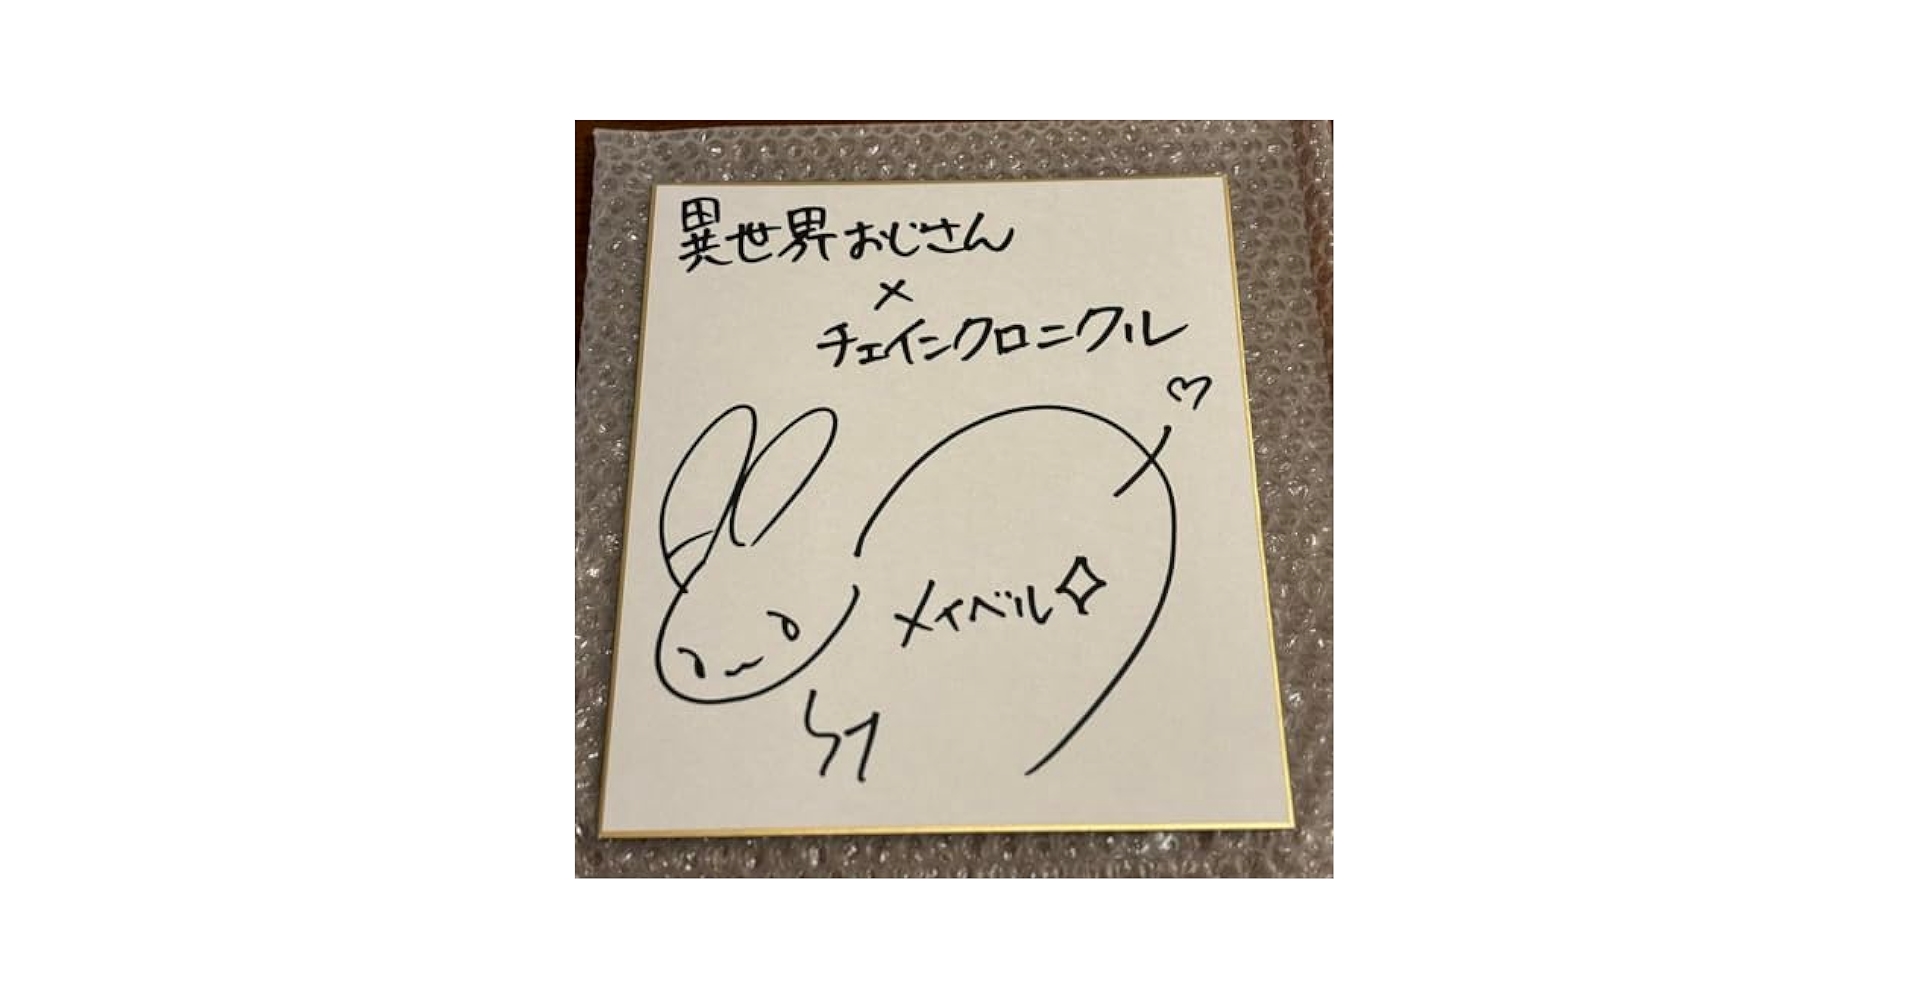 異世界おじさん
×
チェインクロニクル
メイベル